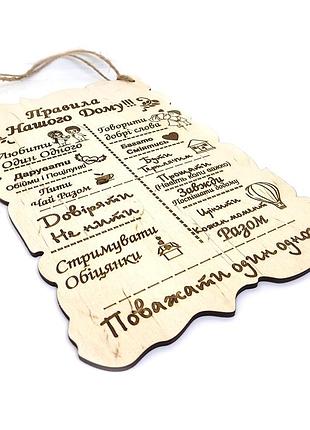 Правила
Нашого Дому!!!
Любити
Один Одного
Дарувати
Обійми і Поцілунки
Пити
Чай Разом
Довіряти
Не пити
Стримувати
Обіцянки
Говорити
добрі слова
Багато
Сміятись
Бути
Терплячим
Прощати
(Навіть коли важко)
Завжди
Поспішати додому
Цінити
Кожен момент
Разом
Поважати один одного